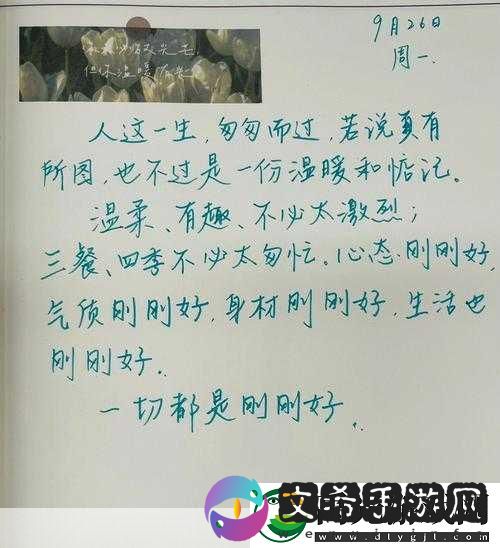 9月26日
周一.
但保温暖
人这一生,匆匆而过,若说真有
所图,也不过是一份温暖和惦记.
温柔、有趣、不必太激烈;
三餐、四季不必太匆忙.心态.刚刚好
气质刚刚好,身材刚刚好,生活也
刚刚好.
一切都是刚刚好..
文希手游网
www.dlygjt.com